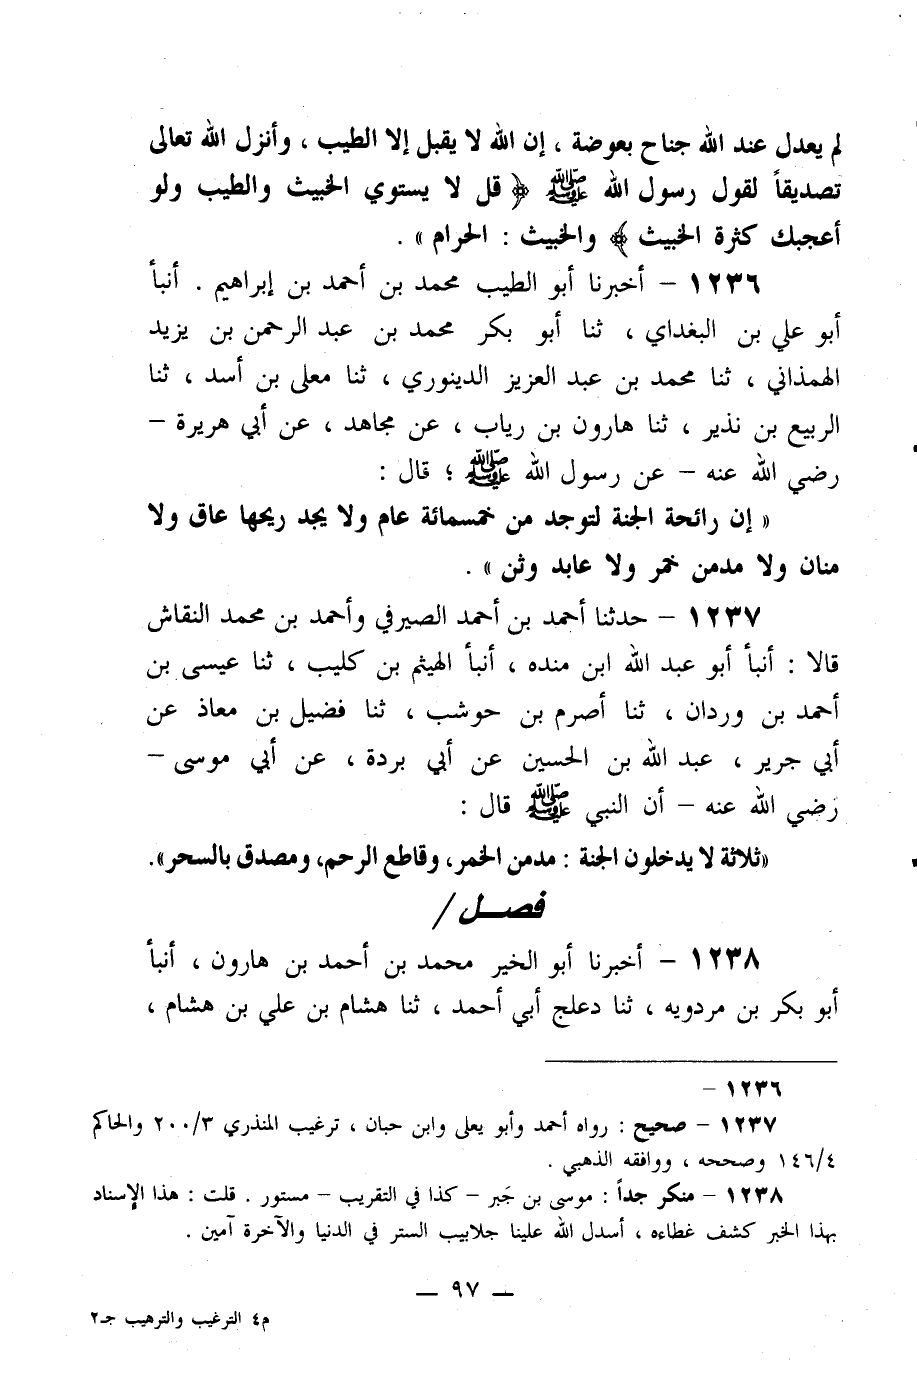 لم يعدل عند الله جناح بعوضة ، إن الله لا يقبل إلا الطيب ، وأنزل الله تعالى
تصديقاً لقول رسول الله ﷺ ﴿ قل لا يستوي الخبيث والطيب ولو
أعجبك كثرة الخبيث ﴾ والخبيث : الحرام » .
١٢٣٦ – أخبرنا أبو الطيب محمد بن أحمد بن إبراهيم . أنبأ
أبو علي بن البغداي ، ثنا أبو بكر محمد بن عبد الرحمن بن يزيد
الهمذاني ، ثنا محمد بن عبد العزيز الدينوري ، ثنا معلى بن أسد ، ثنا
الربيع بن نذير ، ثنا هارون بن رياب ، عن مجاهد ، عن أبي هريرة –
رضي الله عنه – عن رسول الله ﷺ ؛ قال :
« إن رائحة الجنة لتوجد من خمسمائة عام ولا يجد ريحها عاق ولا
منان ولا مدمن خمر ولا عابد وثن » .
١٢٣٧ – حدثنا أحمد بن أحمد الصيرفي وأحمد بن محمد النقاش
قالا : أنبأ أبو عبد الله ابن منده ، أنبأ الهيثم بن كليب ، ثنا عيسى بن
أحمد بن وردان ، ثنا أصرم بن حوشب ، ثنا فضيل بن معاذ عن
أبي جرير ، عبد الله بن الحسين عن أبي بردة ، عن أبي موسى –
رضي الله عنه – أن النبي ﷺ قال :
«ثلاثة لا يدخلون الجنة : مدمن الخمر، وقاطع الرحم، ومصدق بالسحر».
فصـــل /
١٢٣٨ – أخبرنا أبو الخير محمد بن أحمد بن هارون ، أنبأ
أبو بكر بن مردويه ، ثنا دعلج أبي أحمد ، ثنا هشام بن علي بن هشام ،
١٢٣٦ –
١٢٣٧ – صحيح : رواه أحمد وأبو يعلى وابن حبان ، ترغيب المنذري ٢٠٠/٣ والحاكم
١٤٦/٤ وصححه ، ووافقه الذهبي .
١٢٣٨ – منكر جداً : موسى بن جَبر – كذا في التقريب – مستور . قلت : هذا الإسناد
بهذا الخبر كشف غطاءه ، أسدل الله علينا جلابيب الستر في الدنيا والآخرة آمين .
— ٩٧ —
م٤ الترغيب والترهيب جـ٢